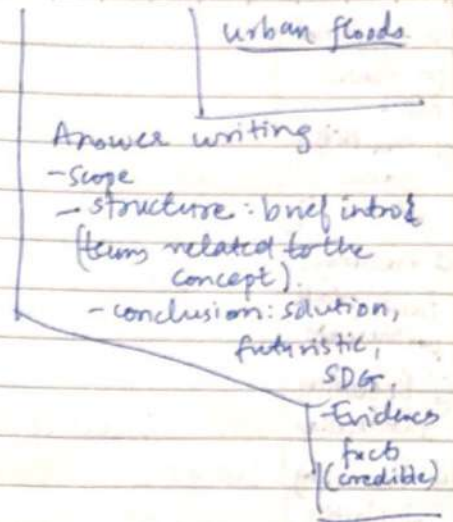 urban floods
Answer writing :
- Scope
- structure : brief introd
(terms related to the
concept).
- conclusion : solution,
futuristic,
SDG,
- Evidences
facts
(credible)